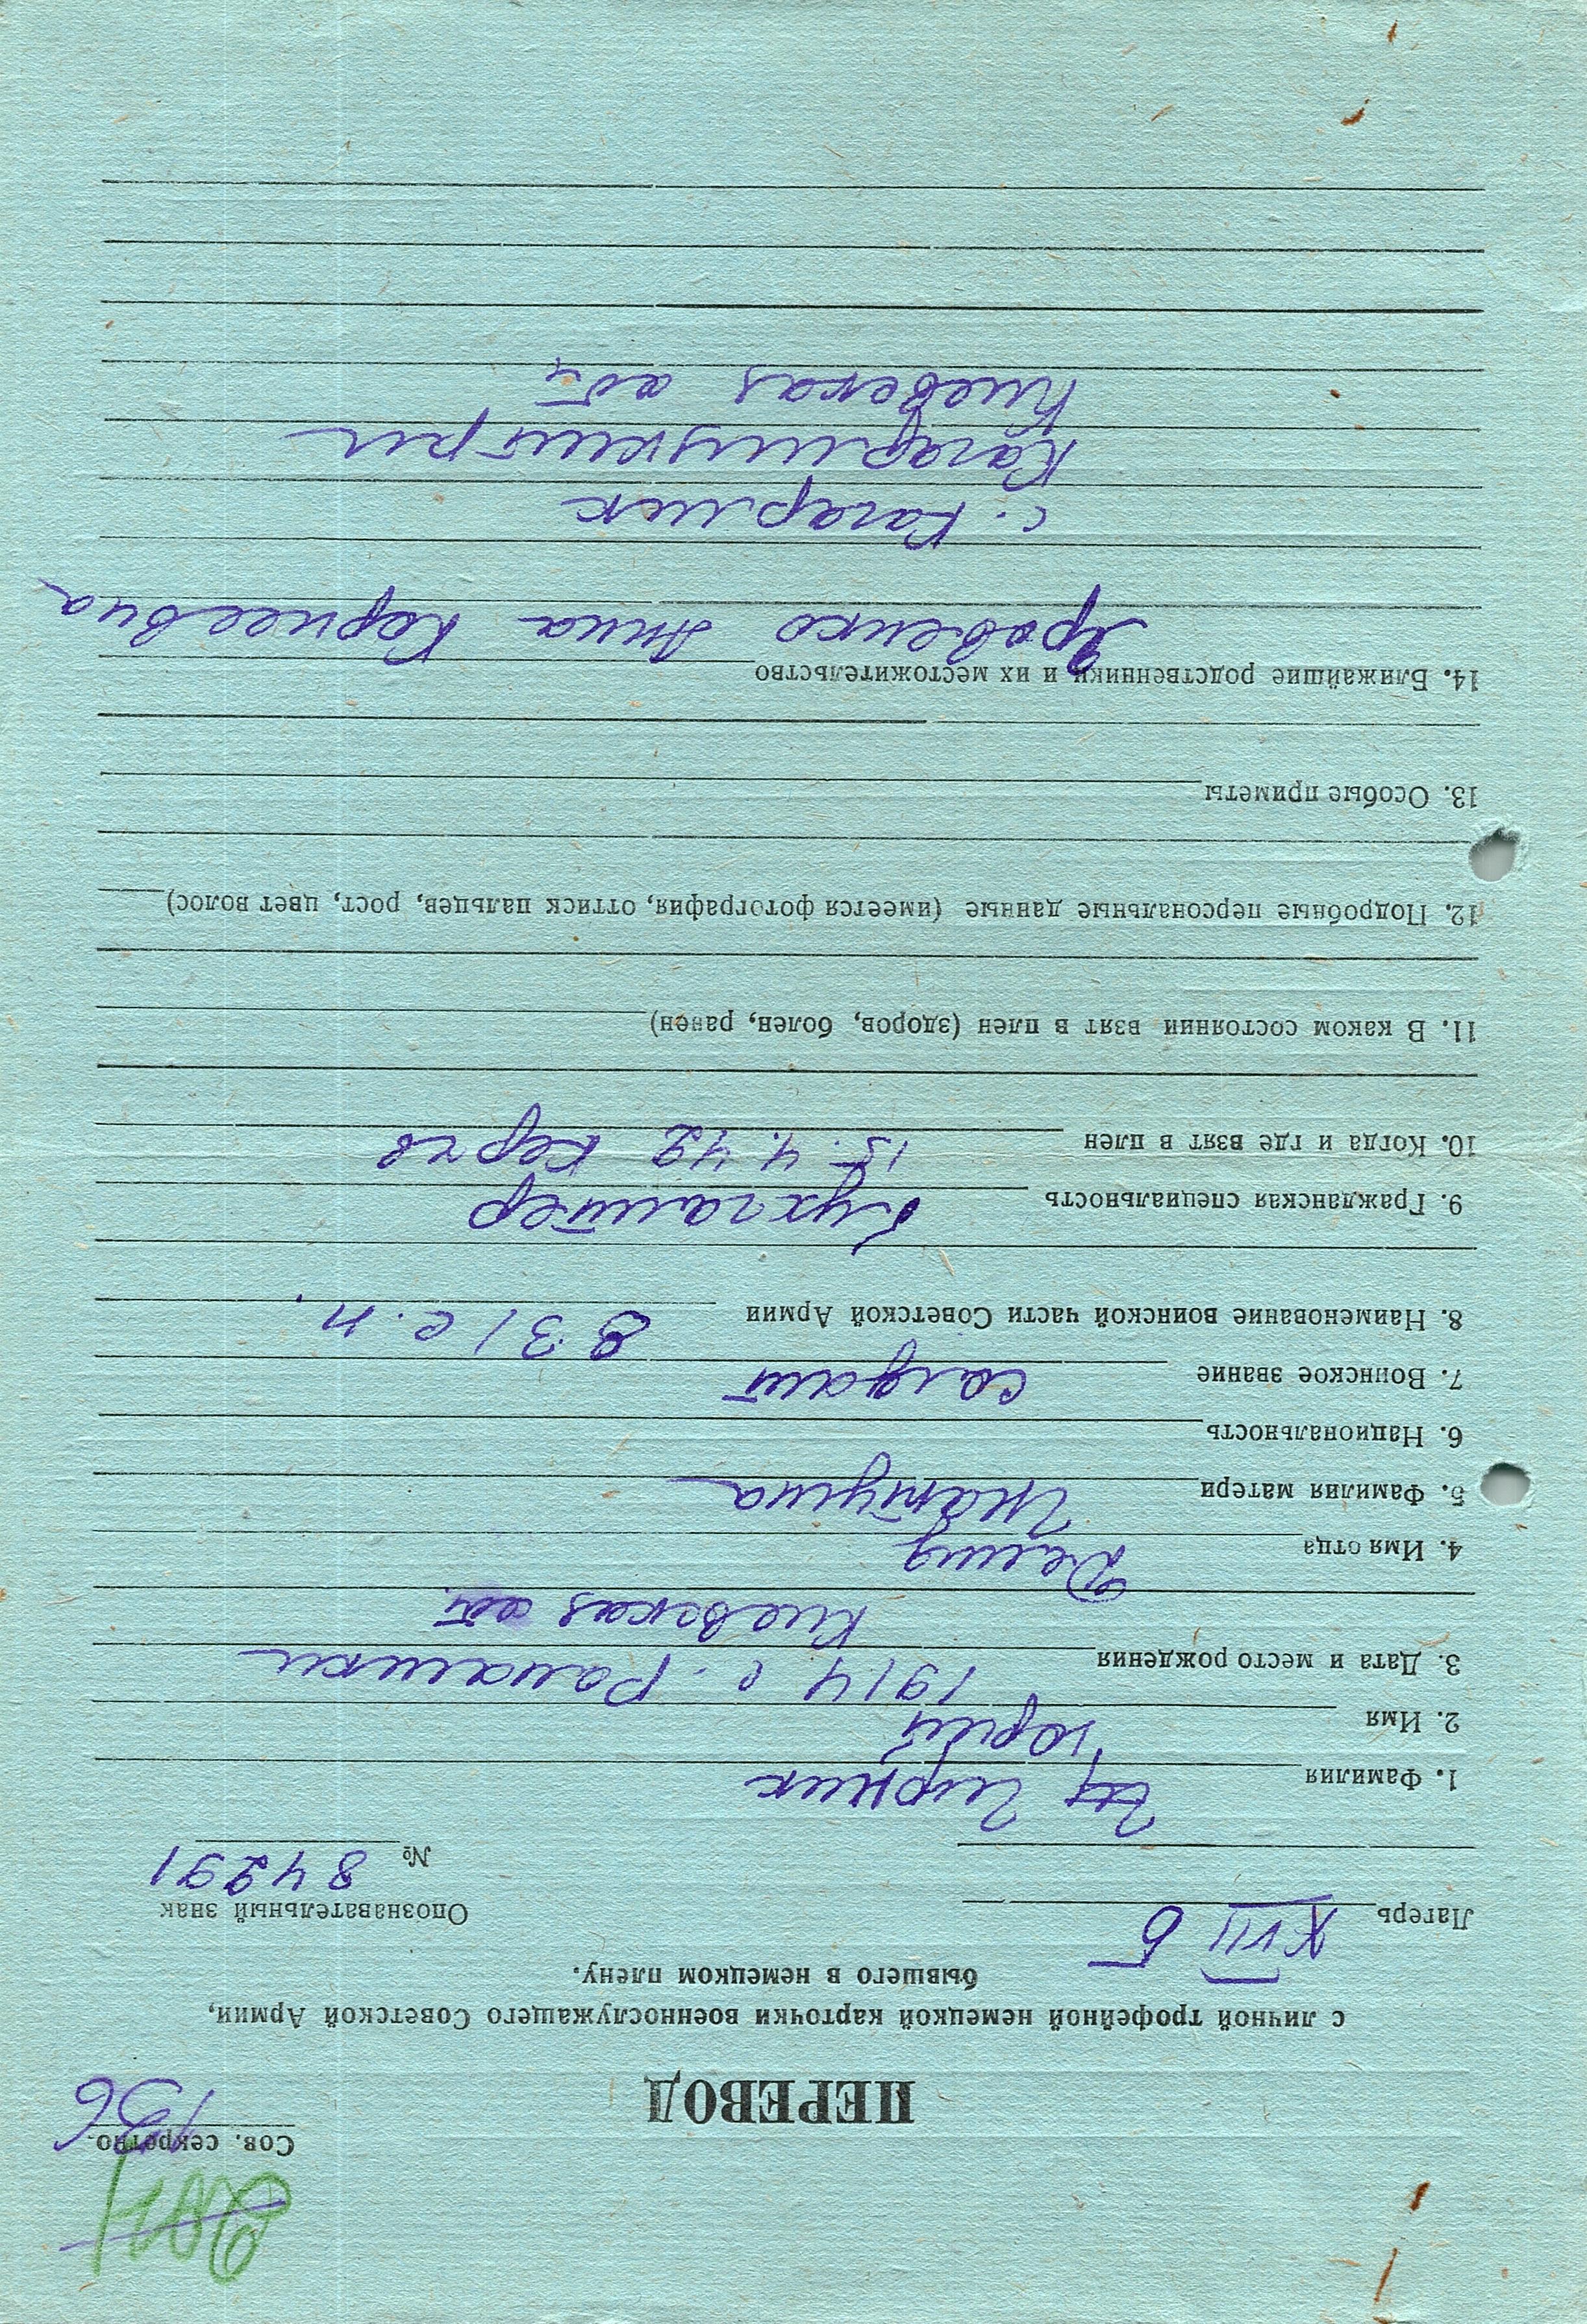 Сов. секретно.
136
ПЕРЕВОД
с личной трофейной немецкой карточки военнослужащего Советской Армии,
бывшего в немецком плену.
Лагерь XVII Б
Опознавательный знак
№ 84291
1. Фамилия Цирник
2. Имя Юрий
3. Дата и место рождения 1914 с. Ромашки
Киевская обл.
4. Имя отца Демид
5. Фамилия матери
6. Национальность
7. Воинское звание солдат
8. Наименование воинской части Советской Армии 831 с.п.
9. Гражданская специальность бухгалтер
10. Когда и где взят в плен 15.4.42 Керчь
11. В каком состоянии взят в плен (здоров, болен, ранен)
12. Подробные персональные данные (имеется фотография, оттиск пальцев, рост, цвет волос)
13. Особые приметы
14. Ближайшие родственники и их местожительство
Яровенко Анна Корнеевна
с. Кагарлик
Кагарлицкий р-н
Киевская обл